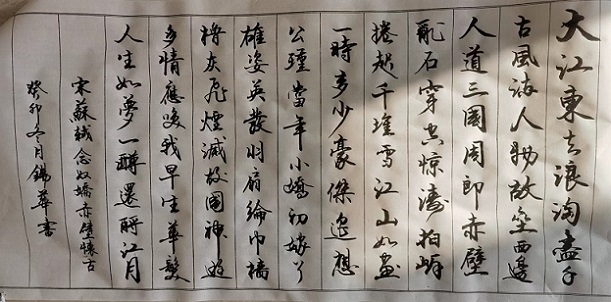 大江東去浪淘盡千
古風流人物故壘西邊
人道三國周郎赤壁
亂石穿空惊濤拍岸
捲起千堆雪江山如畫
一時多少豪傑遥想
公瑾當年小嬌初嫁了
雄姿英發羽扇綸巾檣
櫓灰飛煙滅故國神遊
多情應笑我早生華髮
人生如夢一樽還酹江月
宋蘇軾念奴嬌赤壁懷古
癸卯冬月錦華書